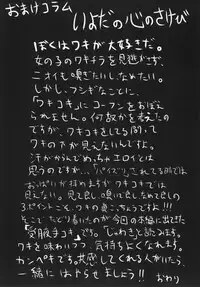 おまけコラム
いよだの心のさけび
ぼくはワキが大好きだ。
女の子のワキチラを見逃さず、
ニオイも嗅ぎたいしなめたい。
しかし、フシギなことに、
「ワキコキ」にコーフンをおぼえ
られません。何故かを考えたの
ですが、ワキコキをしてる間って
ワキの下が見えないんですよ。
汗がからんでめっちゃエロいとは
思うのですが、、、「パイズリ」されてる間では
おっぱいが拝めますがワキコキでは
見えない。見て良し、嗅いで良し、なめて良しの
3ポイントこそ、ワキの良さでしょうよ!!!
そこでたどり着いたのが今回の本編に出てきた
「受服手コキ」です。「じゅわき」と読みます。
ワキを味わいつつ、気持ちよくなれます。
カンペキです。共感してくれる人がいたら、
一緒にはやらせましょう!!
おわり